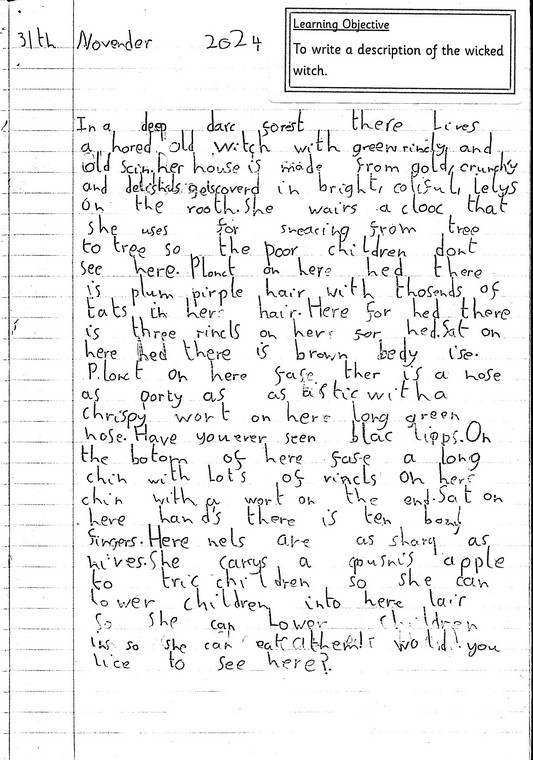 31th Novender 2024
Learning Objective
To write a description of the wicked
witch.
In a deep darc forist there Lives
a hored old witch with green rincly and
old scin. her house is made from gold, crunchy
and in bright, coliful, lelys
on the rooth. She wairs a clooc that
she uses for sneacing from tree
to tree so the poor children dont
see here. Plonct on here hed there
is plum pirple hair with thosends of
tats in here hair. Here for hed there
is three rincls on here for hed. Sat on
here hed there is brown bedy ise.
Plonct on here fase ther is a nose
as porty as as a stic with a
chrispy wort on here long green
nose. Have you ever seen blac lipps. On
the botom of here fase a long
chin with Lot's of rincls on here
chin with a wort on the end. Sat on
here hand's there is ten bony
fingers. Here nels are as sharp as
nives. She carrys a apple
to tric children so she can
lower children into here lair
so she can Lower children
ins so she can eat them! would you
lice to see here?